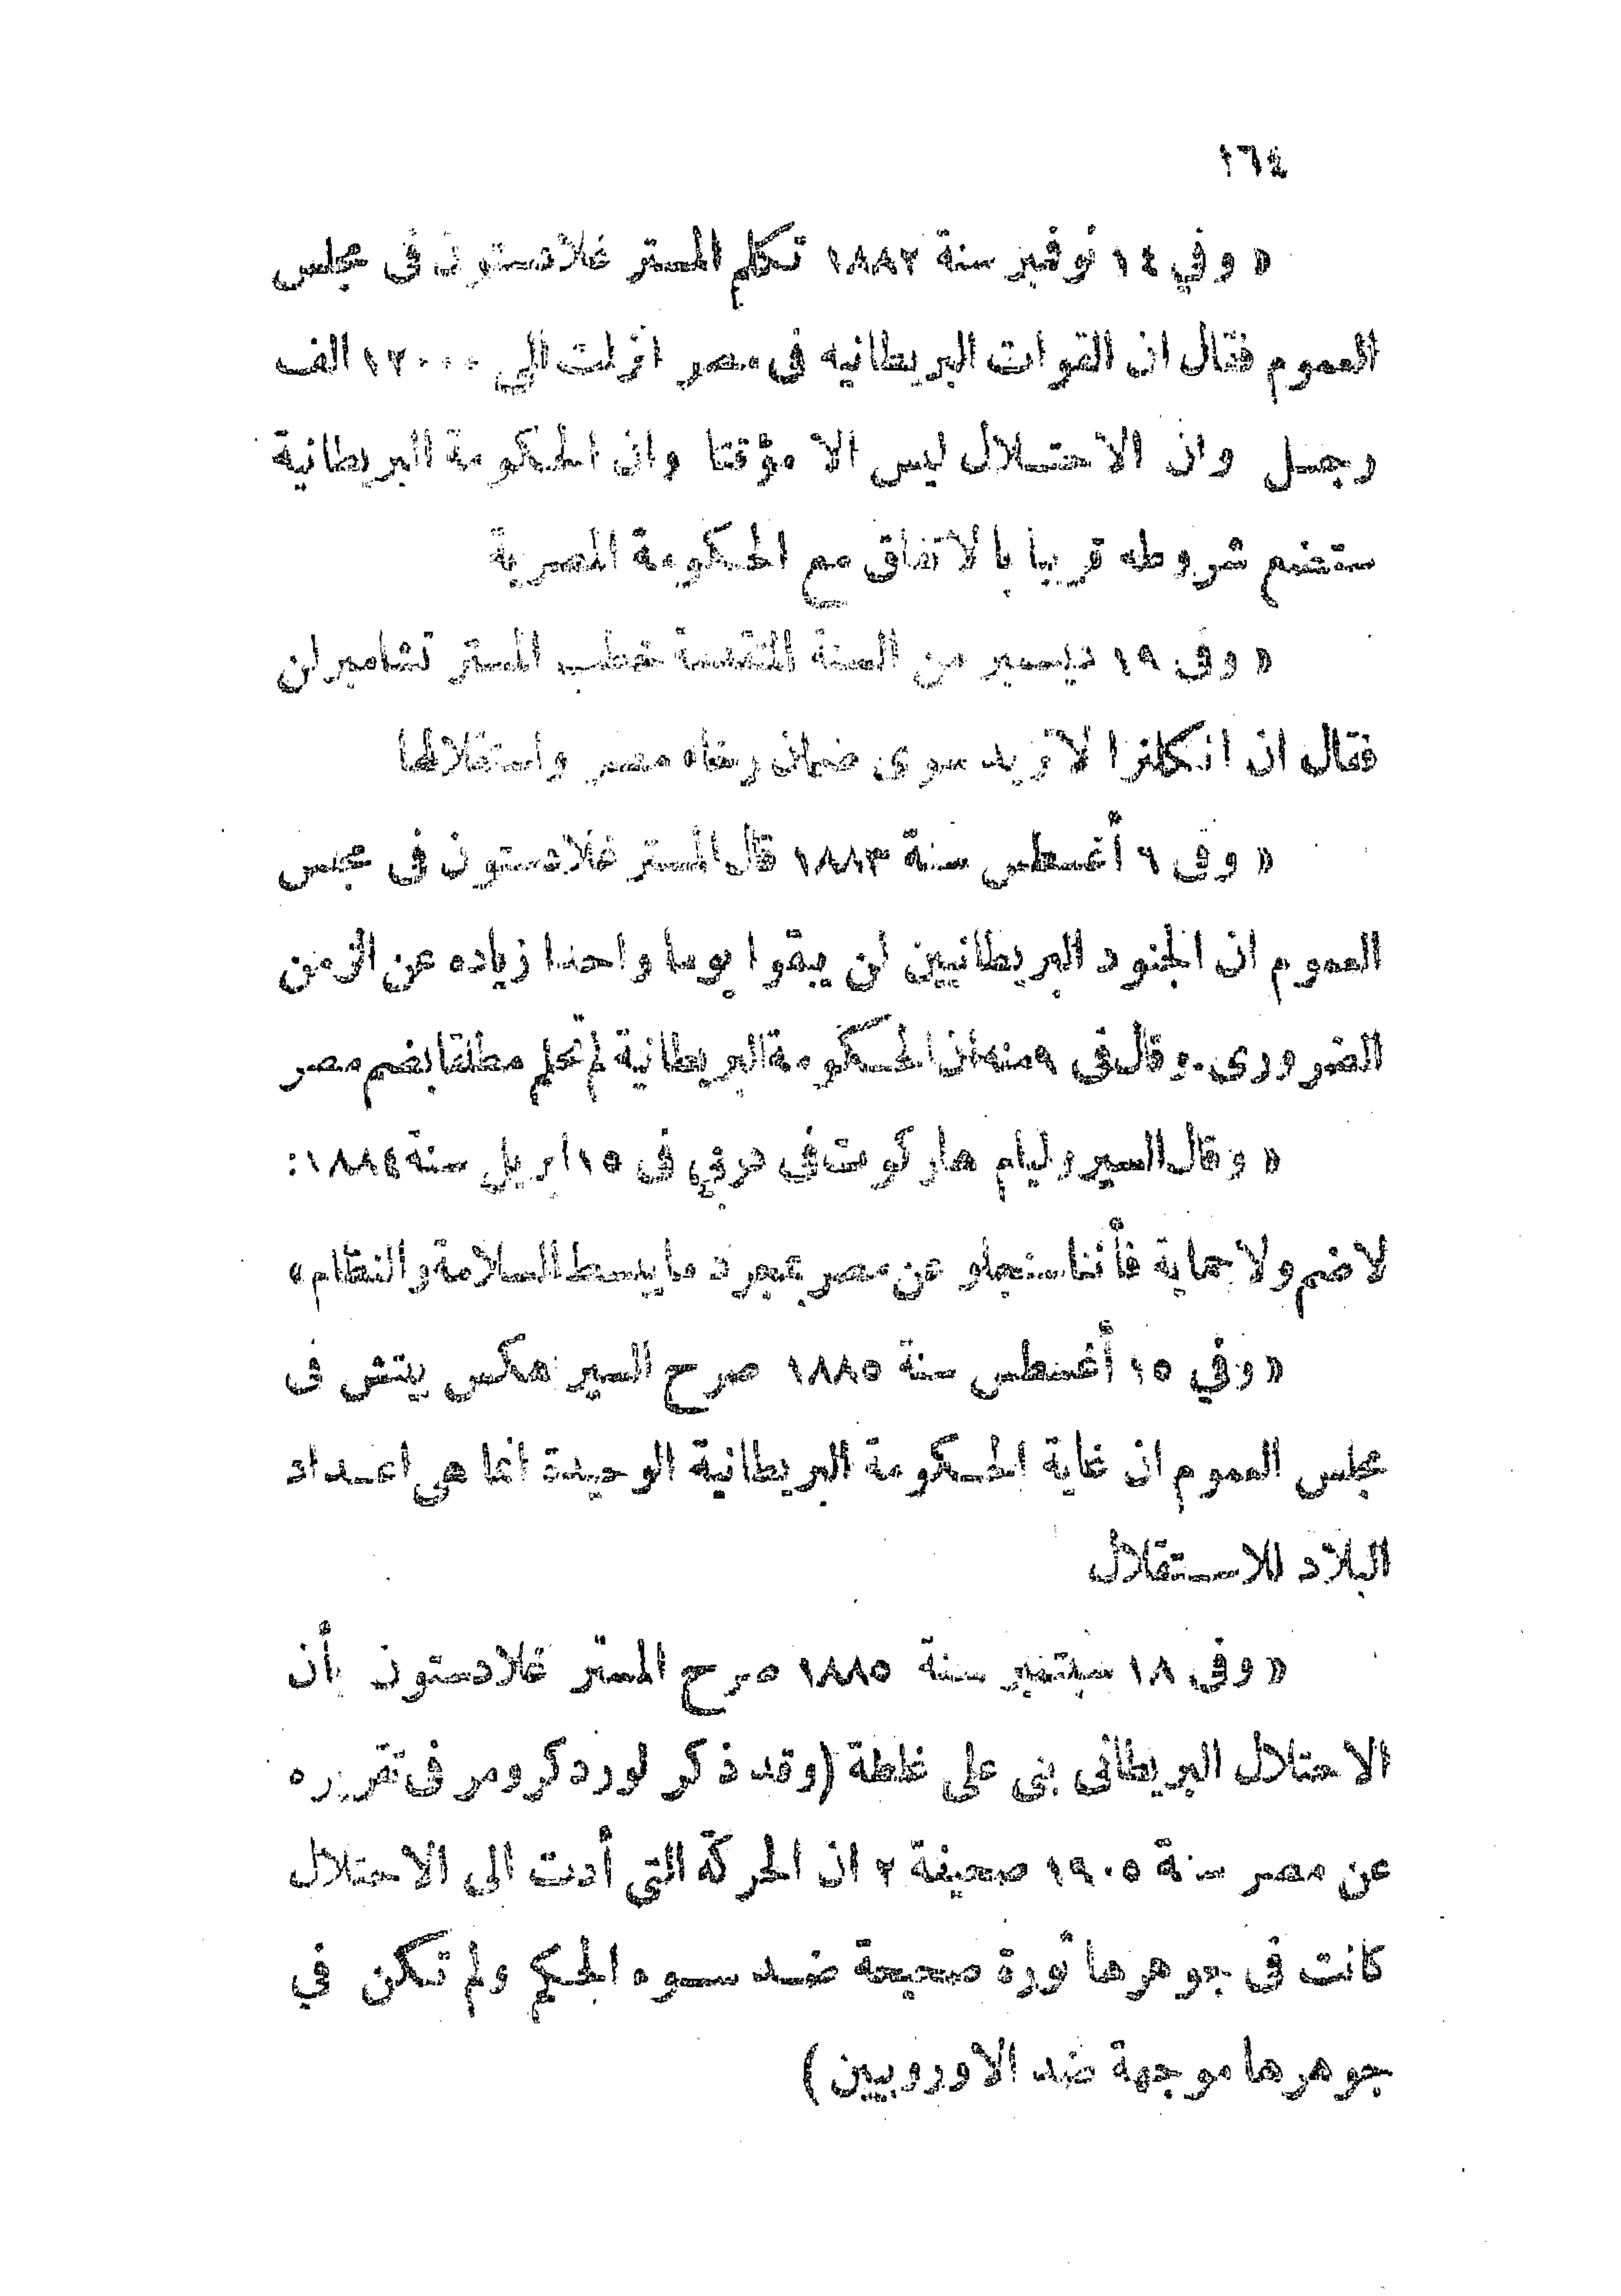 ١٦٤
« وفي ١٤ نوفمبر سنة ١٨٨٢ تكلم المستر غلادستون فى مجلس
العموم فقال ان القوات البريطانيه فى مصر انزلت الي ١٢٠٠٠ الف
رجل وان الاحتلال ليس الا مؤقتا وان الحكومة البريطانية
ستضم شروطه قريبا بالاتفاق مع الحكومة المصرية
« وفى ١٩ ديسمبر من السنة المتقدمة خطب المستر تشامبرلن
فقال ان انكلترا لا تريد سوى ضمان رفاه مصر واستقلالها
« وفى ٦ أغسطس سنة ١٨٨٣ قال المستر غلادستون فى مجلس
العموم ان الجنود البريطانيين لن يبقوا يوما واحدا زياده عن الزمن
الضرورى. وقال فى ٩ منه ان الحكومة البريطانية لم تحلم مطلقا بضم مصر
« وقال السير وليام هاركوت فى دربي فى ١٥ ابريل سنة ١٨٨٤ :
لا ضم ولا حماية فأننا سنجلو عن مصر بمجرد ما يبسط السلامة والنظام »
« وفي ١٥ أغسطس سنة ١٨٨٥ صرح السير هكس يتش فى
مجلس العموم ان غاية الحكومة البريطانية الوحيدة انما هى اعداد
البلاد للاستقلال
« وفى ١٨ سبتمبر سنة ١٨٨٥ صرح المستر غلادستون بأن
الاحتلال البريطانى بنى على غلطة (وقد ذكر لورد كرومر فى تقريره
عن مصر سنة ١٩٠٥ صحيفة ٢ ان الحركة التي أدت الى الاحتلال
كانت فى جوهرها ثورة صحيحة ضد سوء الحكم ولم تكن في
جوهرها موجهة ضد الاوروبيين)